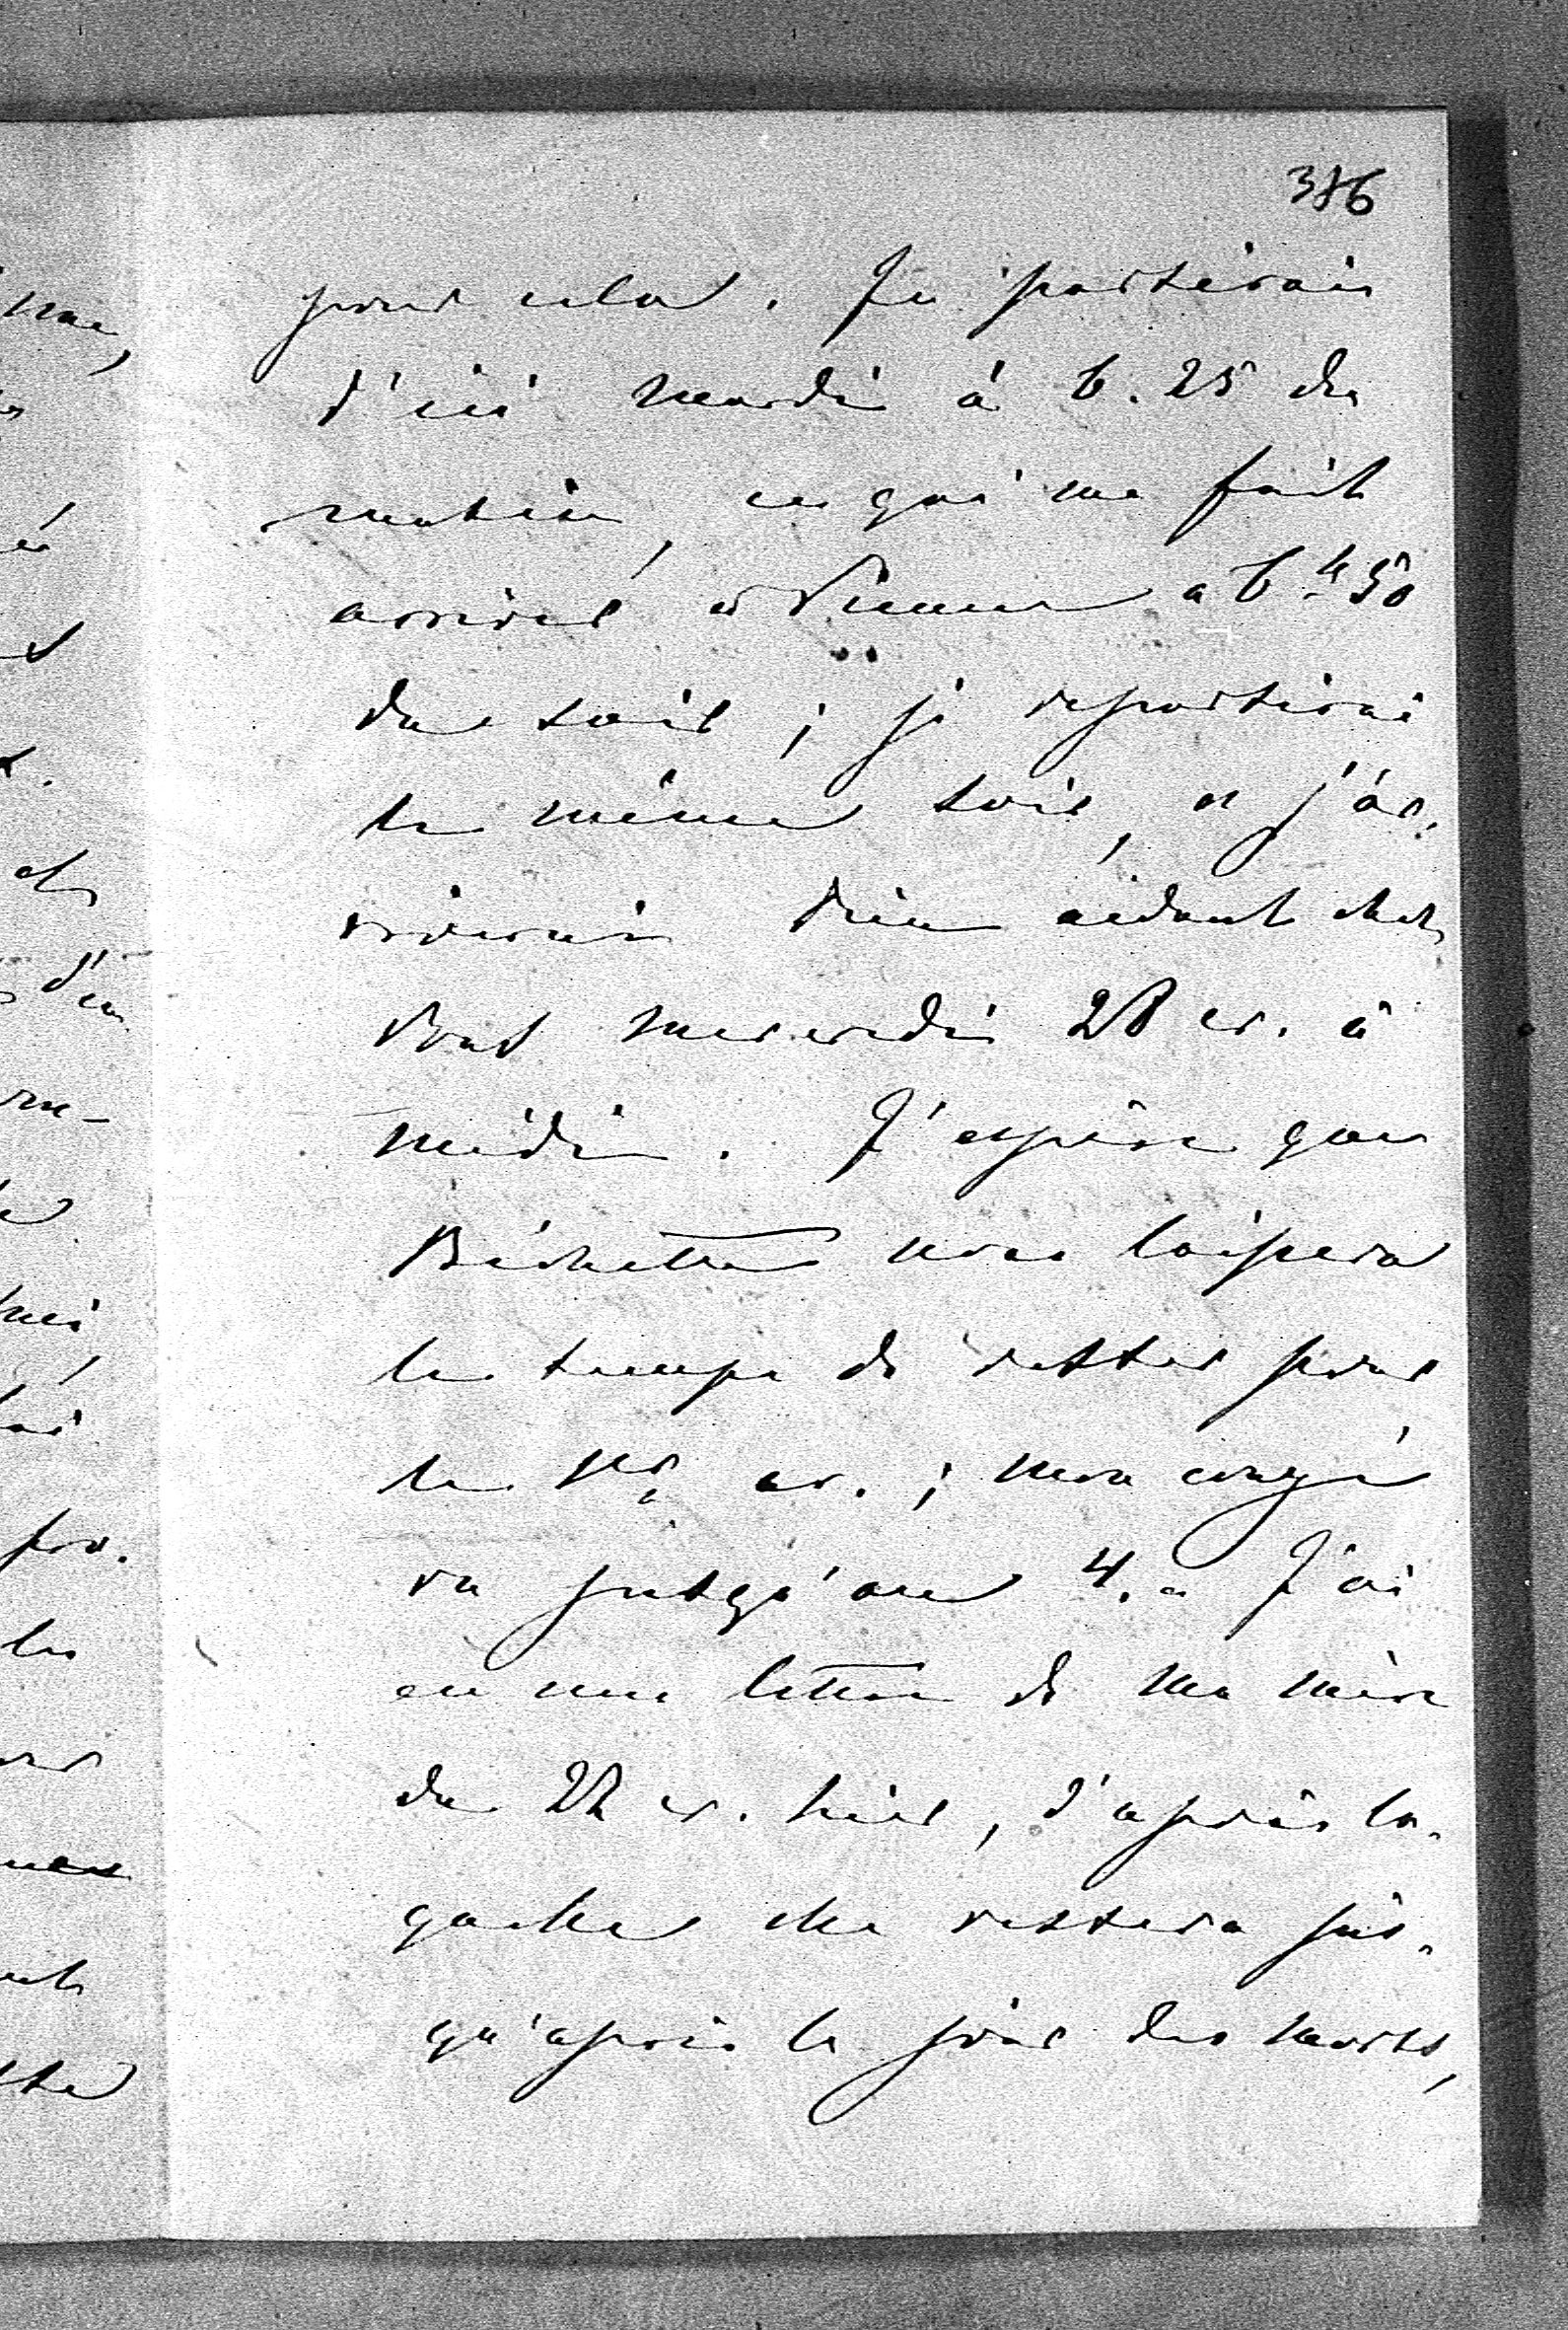 386
pour cela. Je partirais
d'ici mardi à 6.25 du
matin, ce qui me fait
arriver à Vienne a 6.h 50
du soir; je repartirai
le même soir, et j'ar-
riverais Dieu aidant chez
Vous mercredi 28 cr. à
midi. J'espère que
nous laissera
le temps de rester pour
le cr.; mon congé
va jusqu'au 4. J'ai
eu une lettre de ma mère
du 22 cr. hier, d'après la-
quelle elle restera jus-
qu'après le jour des morts,